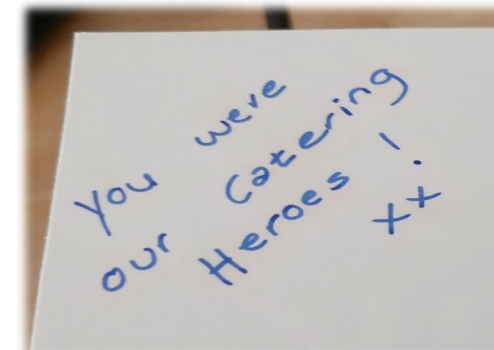 You were
our Catering
Heroes !
xx